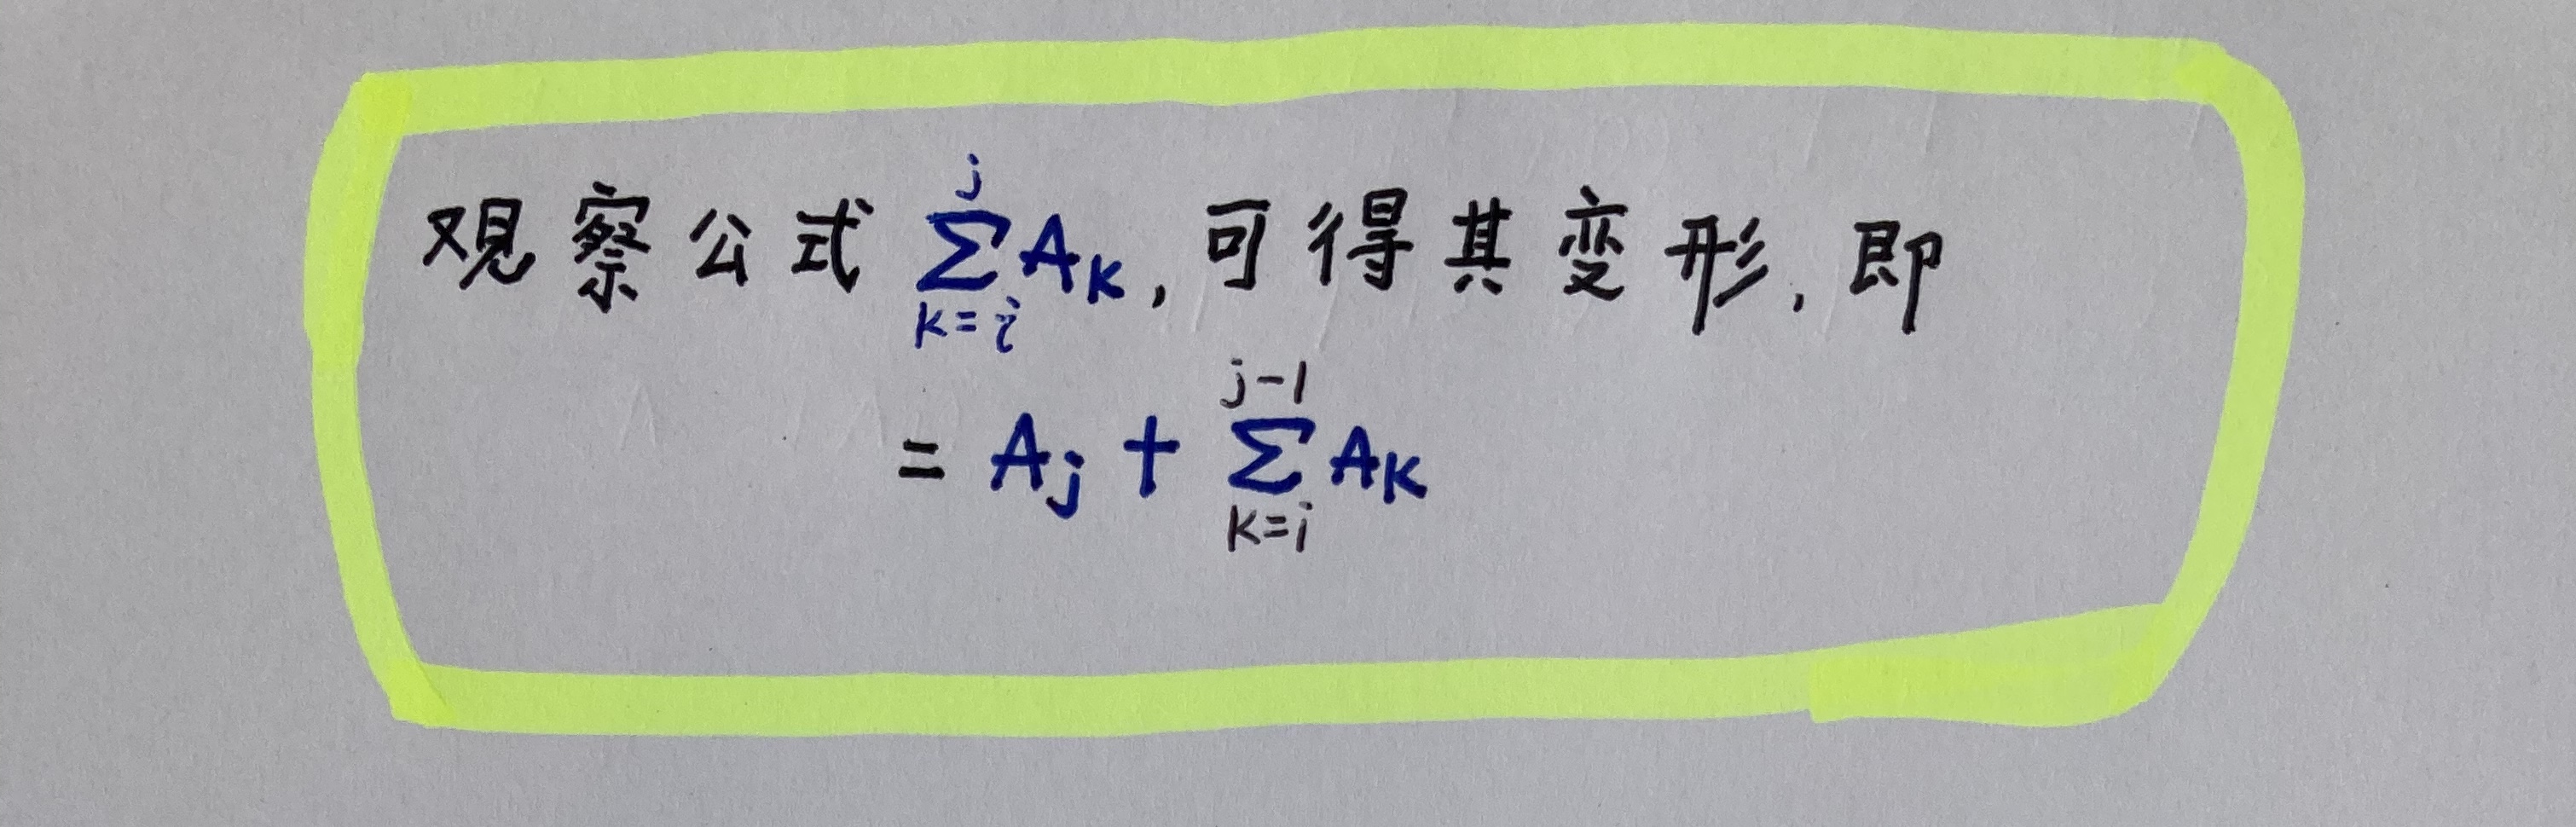 观察公式 $\sum_{k=i}^{j} A_k$, 可得其变形, 即
$= A_j + \sum_{k=i}^{j-1} A_k$